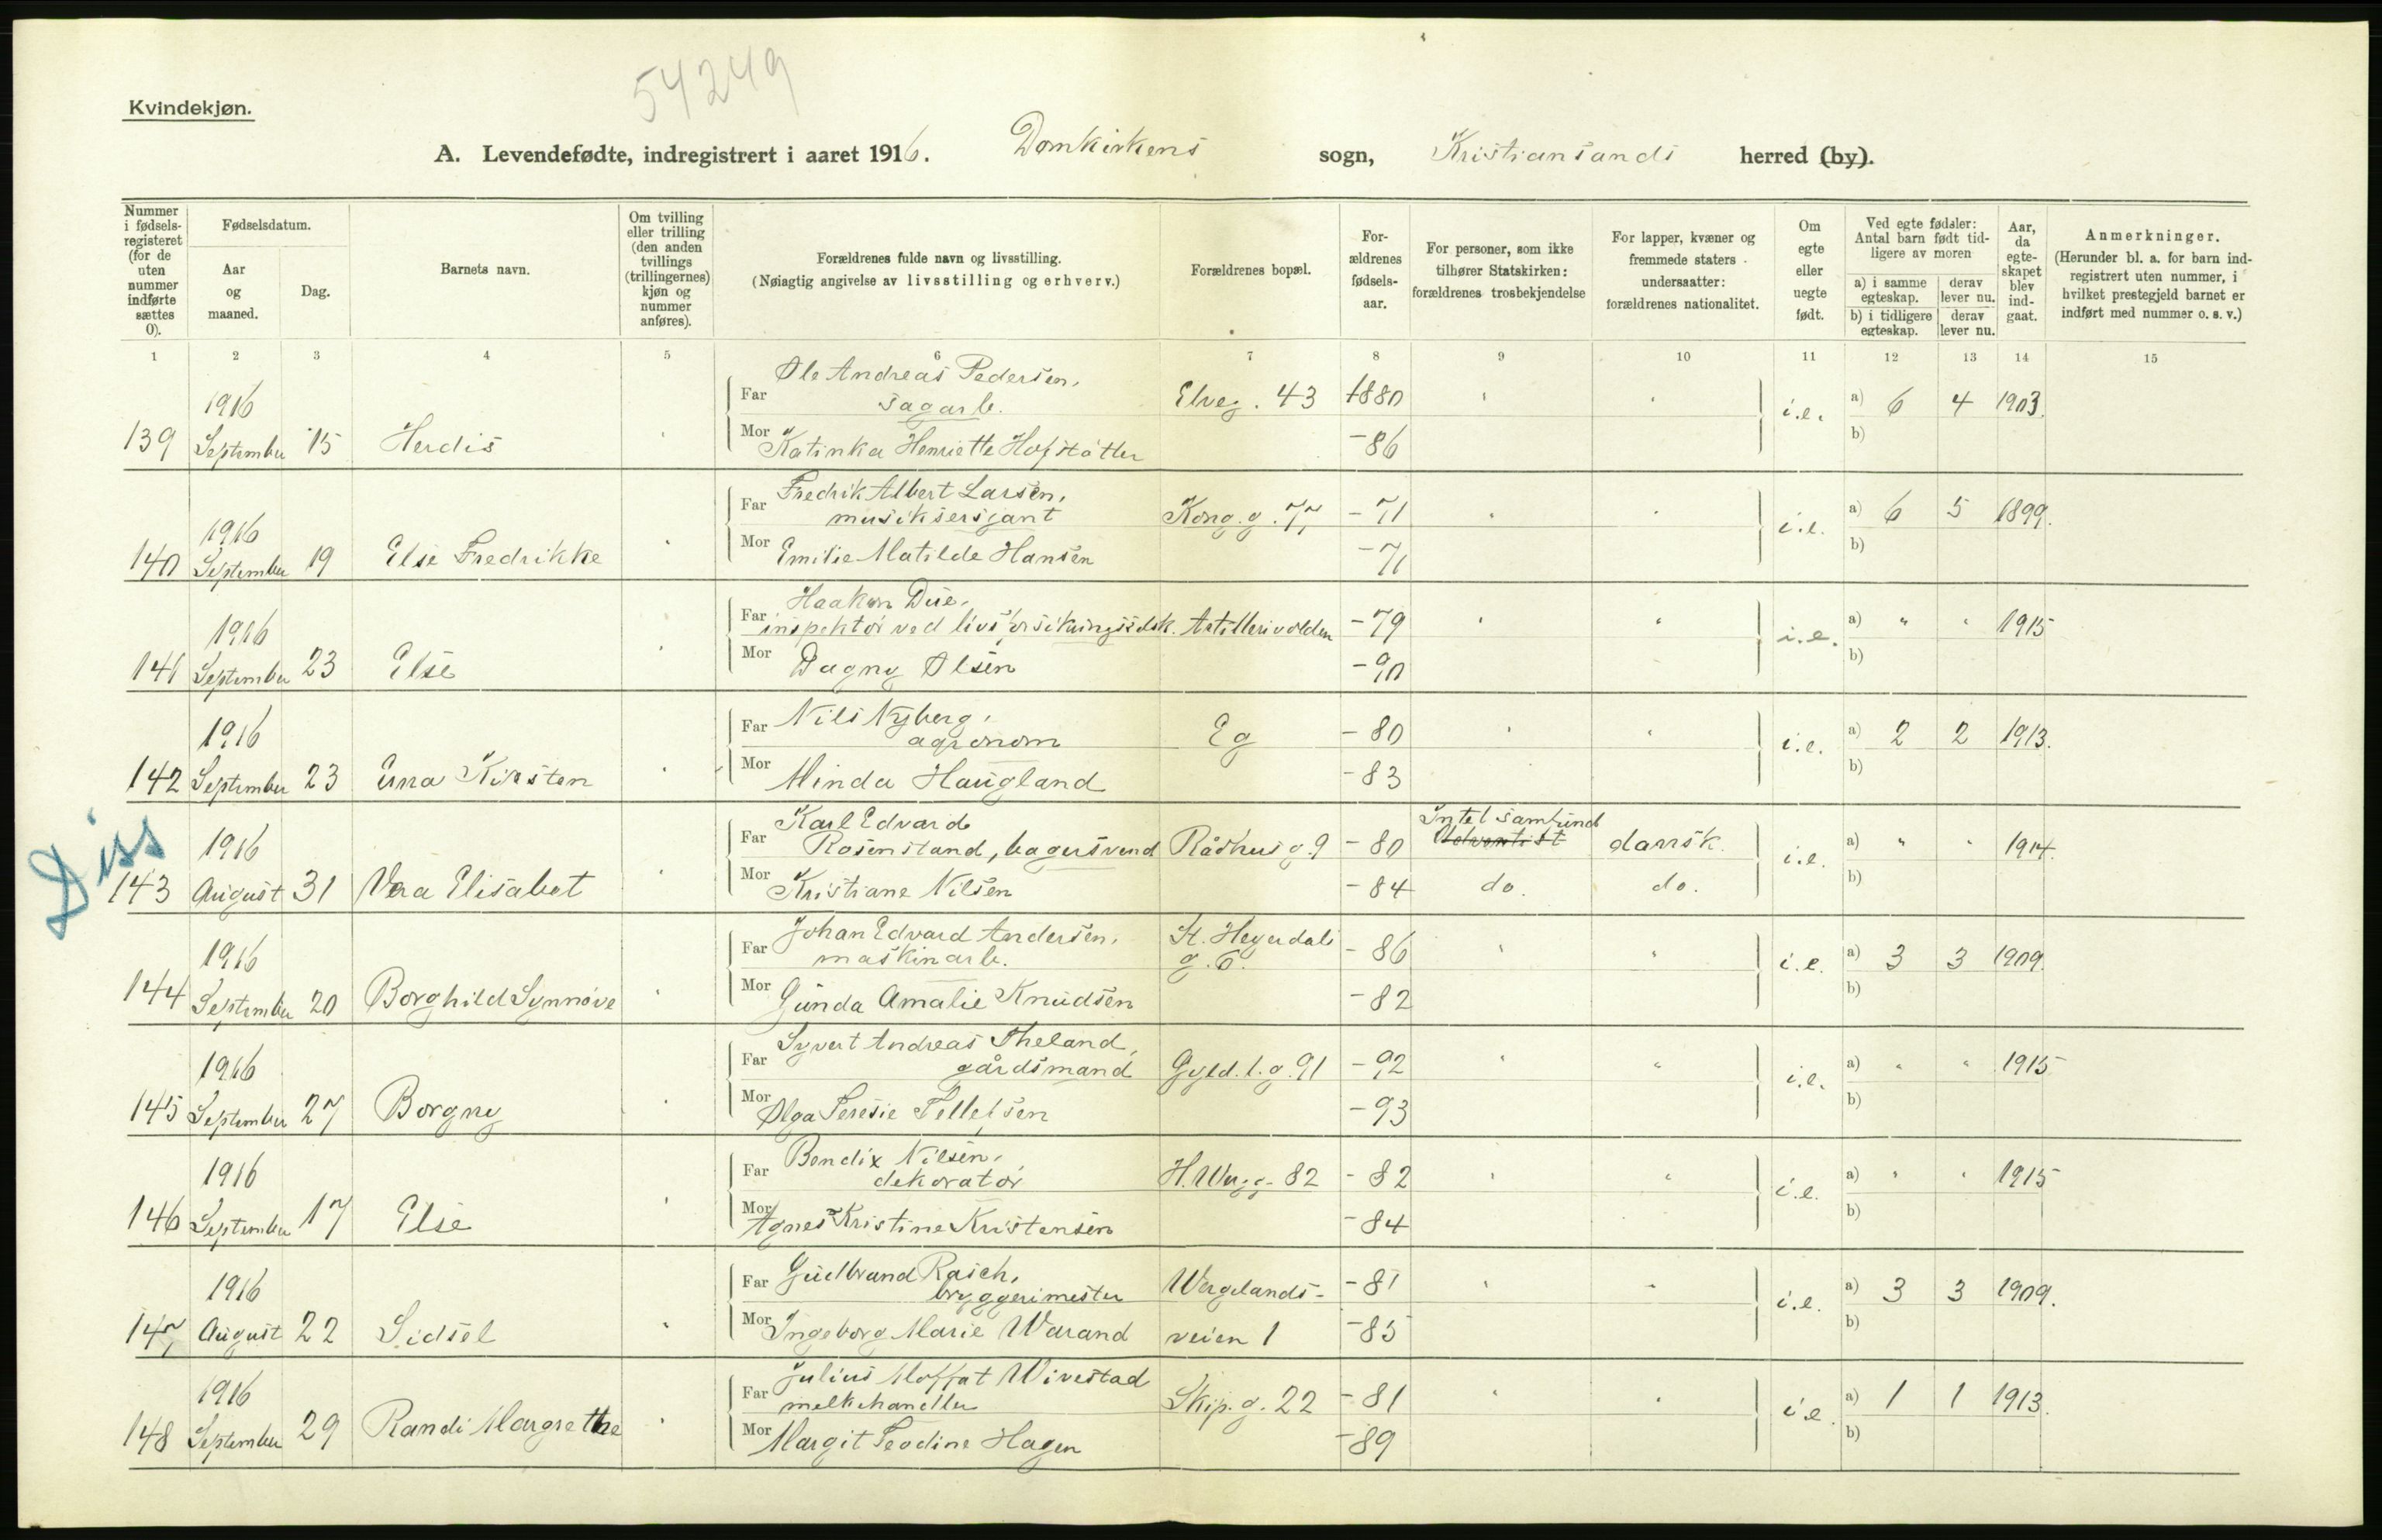 54249
Kvindekjøn.
A. Levendefødte, indregistrert i aaret 1916. Domkirkens sogn, Kristiansands herred (by).
Nummer i fødselsregisteret (for de uten nummer indførte sættes 0).
Fødselsdatum.
Aar og maaned.
Dag.
Barnets navn.
Om tvilling eller trilling (den anden tvillings (trillingernes) kjøn og nummer anføres).
Forældrenes fulde navn og livsstilling.
(Nøiagtig angivelse av livsstilling og erhverv.)
Forældrenes bopæl.
Forældrenes fødselsaar.
For personer, som ikke tilhører Statskirken: forældrenes trosbekjendelse
For lapper, kvæner og fremmede staters undersaatter: forældrenes nationalitet.
Om egte eller uegte født.
Ved egte fødsler: Antal barn født tidligere av moren
a) i samme egteskap. derav lever nu.
b) i tidligere egteskap. derav lever nu.
Aar, da egteskapet blev indgaat.
Anmerkninger.
(Herunder bl. a. for barn indregistrert uten nummer, i hvilket prestegjeld barnet er indført med nummer o. s. v.)
1 2 3 4 5 6 7 8 9 10 11 12 13 14 15
139 1916 September 15 Herdis
Far Ole Andreas Pedersen, sagarb. Elveg. 43 1880 " " i.e. a) 6 4 1903.
Mor Katinka Henriette Hofstätter -86 b)
140 1916 September 19 Else Fredrikke
Far Fredrik Albert Larsen, musiksersjant Kong. g. 77 -71 " " i.e. a) 6 5 1899.
Mor Emilie Matilde Hansen -71 b)
141 1916 September 23 Else
Far Haakon Due, inspektør ved livsforsikringsselsk. Artillerivolden -79 " " i.e. a) " " 1915
Mor Dagny Olsen -90 b)
142 1916 September 23 Erna Kirsten
Far Nils Nyberg, agronom Eg -80 " " i.e. a) 2 2 1913.
Mor Minda Haugland -83 b)
Diss
143 1916 August 31 Vera Elisabet
Far Karl Edvard Rosenstand, bagersvend Rådhusg. 9 -80 Intet samfund Adventist dansk. i.e. a) " " 1914.
Mor Kristiane Nilsen -84 do. do. b)
144 1916 September 20 Borghild Synnøve
Far Johan Edvard Andersen, maskinarb. St. Heyerdals g. 6. -86 " " i.e. a) 3 3 1909.
Mor Gunda Amalie Knudsen -82 b)
145 1916 September 27 Borgny
Far Syvert Andreas Theland, gårdsmand Gyld. l. g. 91 -92 " " i.e. a) " " 1915
Mor Olga Teresie Tellefsen -93 b)
146 1916 September 17 Else
Far Bendix Nilsen, dekoratør H. Werg. g. 82 -82 " " i.e. a) " " 1915
Mor Agnes Kristine Kristensen -84 b)
147 1916 August 22 Sidsel
Far Gudbrand Rasch, bryggerimester Wergelands- -81 " " i.e. a) 3 3 1909.
Mor Ingeborg Marie Warand veien 1 -85 b)
148 1916 September 29 Randi Margrethe
Far Julius Moffat Wivestad melkehandler Skip. g. 22 -81 " " i.e. a) 1 1 1913.
Mor Margit Teodine Hagen -89 b)